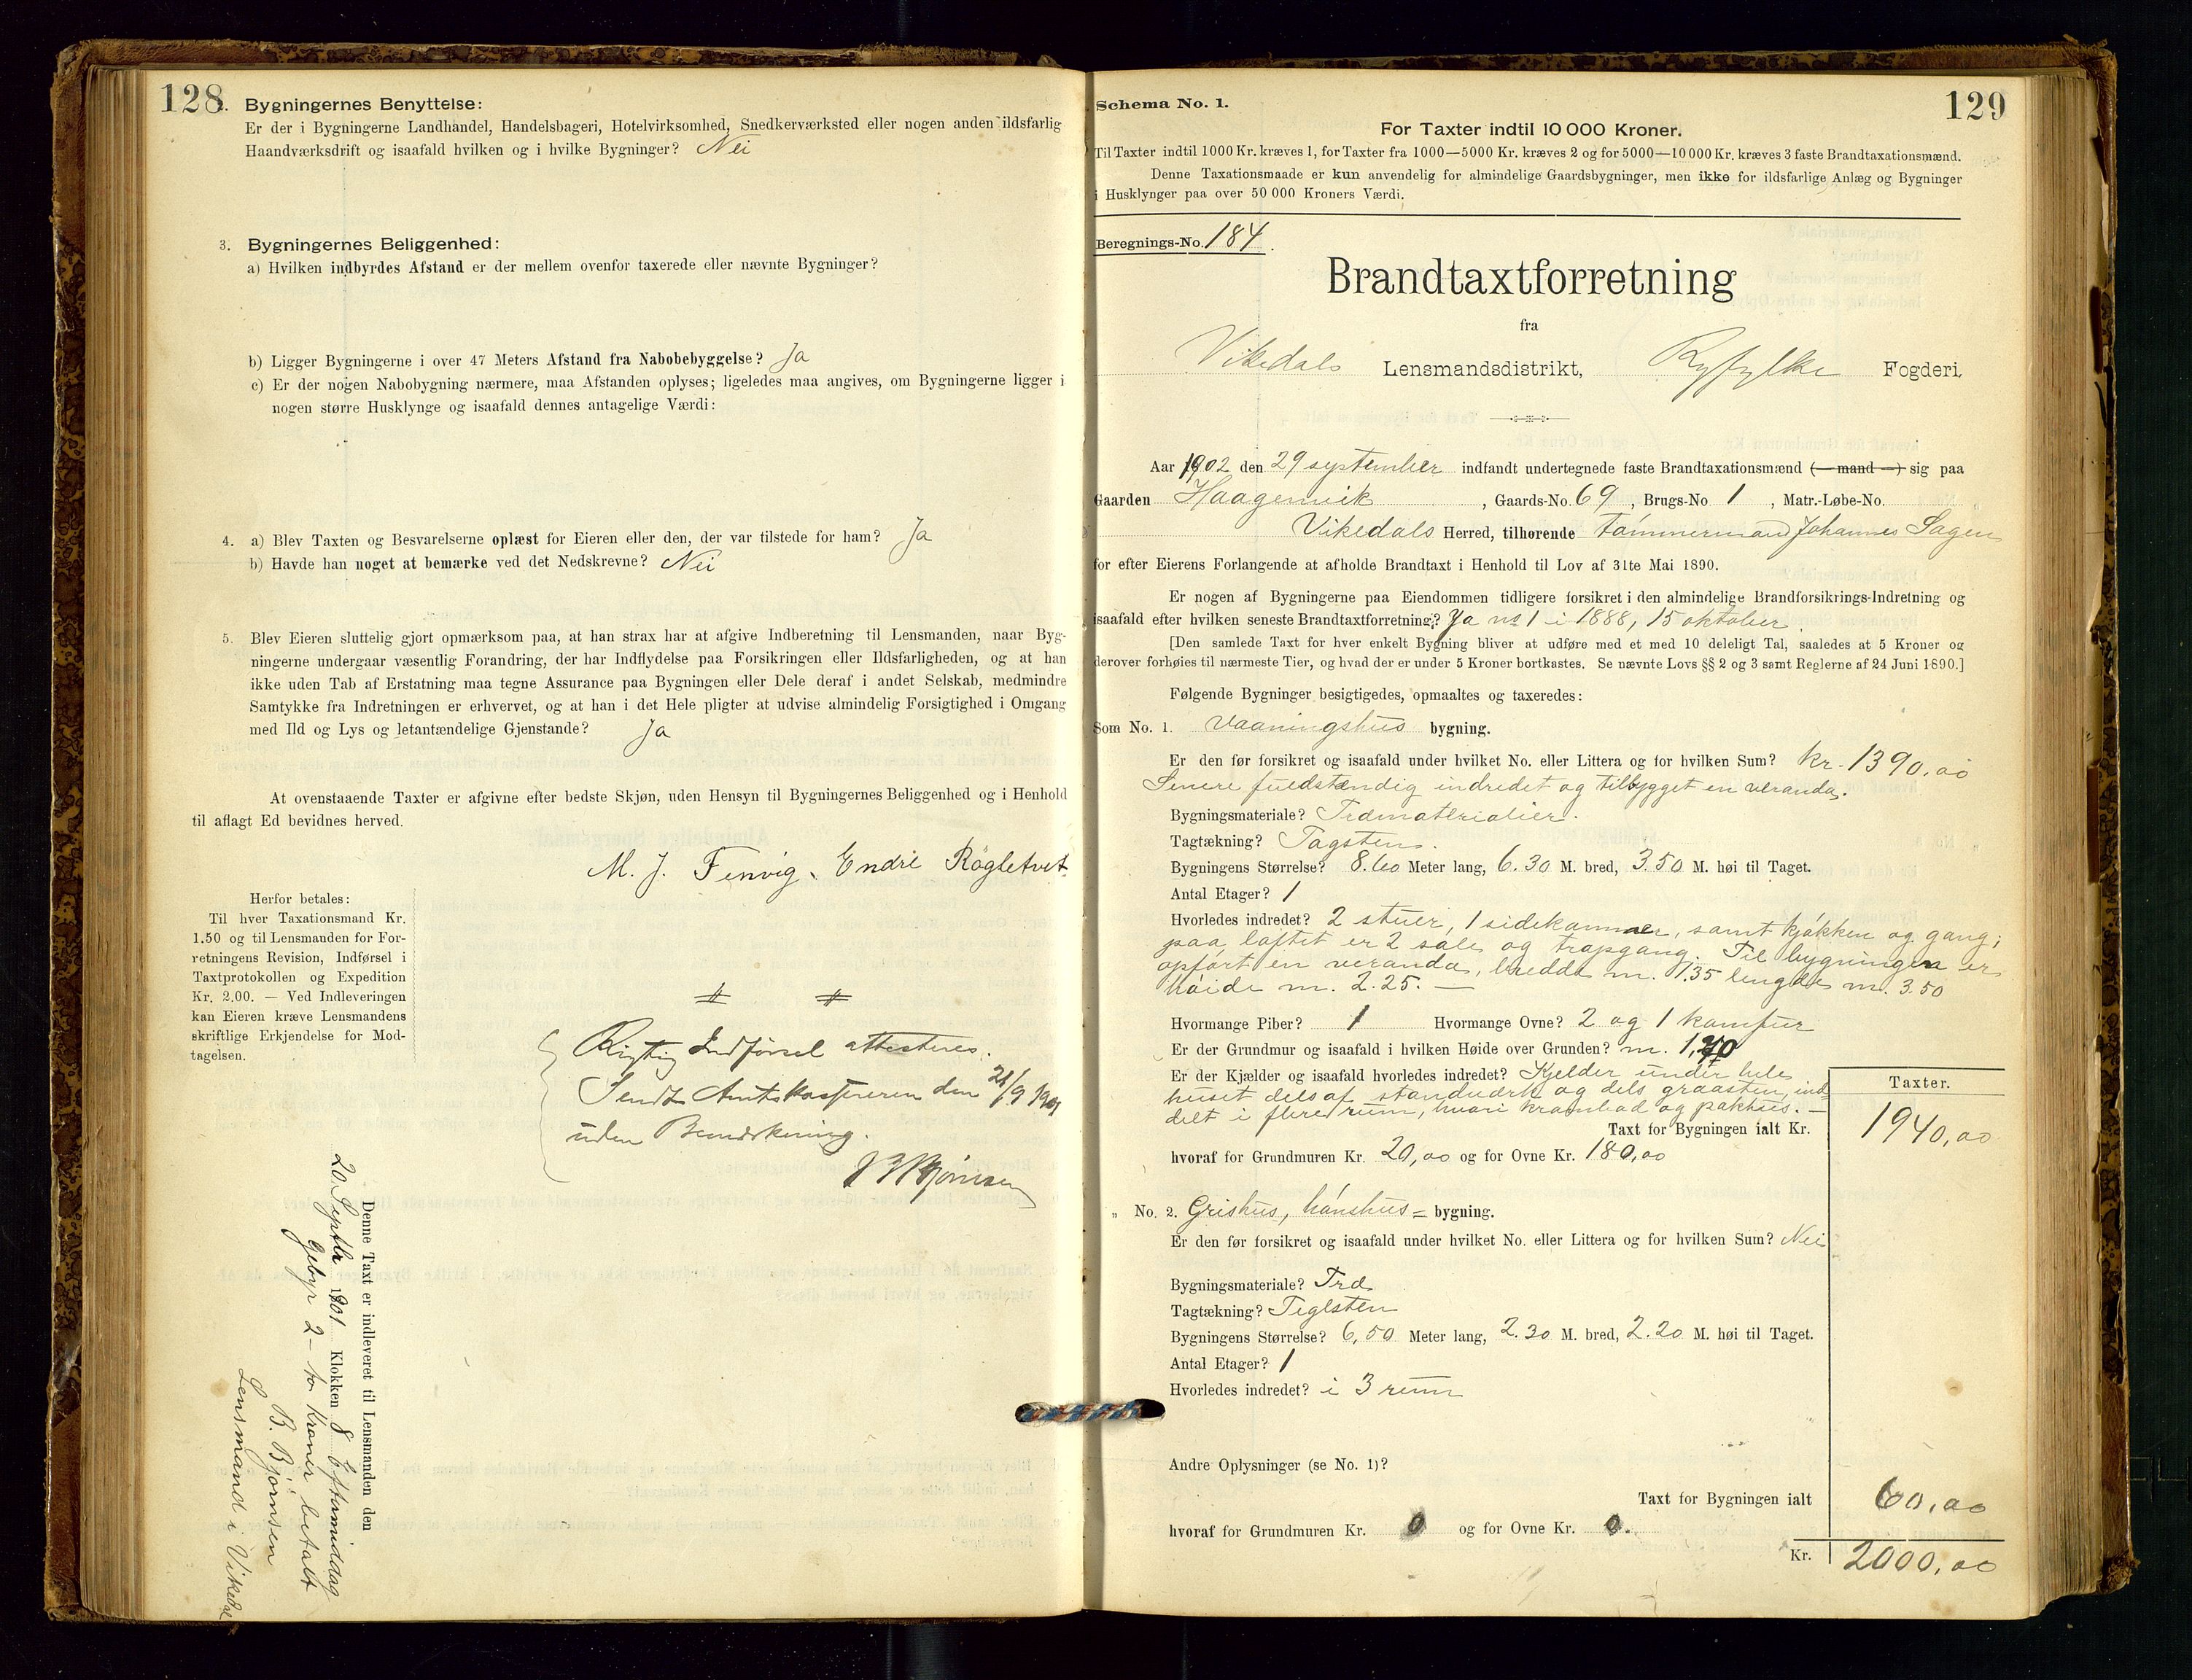 128.
Bygningernes Benyttelse:
Er der i Bygningerne Landhandel, Handelsbageri, Hotelvirksomhed, Snedkerværksted eller nogen anden ildsfarlig
Haandværksdrift og isaafald hvilken og i hvilke Bygninger? Nei
3. Bygningernes Beliggenhed:
a) Hvilken indbyrdes Afstand er der mellem ovenfor taxerede eller nævnte Bygninger?
b) Ligger Bygningerne i over 47 Meters Afstand fra Nabobebyggelse? Ja
c) Er der nogen Nabobygning nærmere, maa Afstanden oplyses; ligeledes maa angives, om Bygningerne ligger i
nogen større Husklynge og isaafald dennes antagelige Værdi:
4. a) Blev Taxten og Besvarelserne oplæst for Eieren eller den, der var tilstede for ham? Ja
b) Havde han noget at bemærke ved det Nedskrevne? Nei
5. Blev Eieren sluttelig gjort opmærksom paa, at han strax har at afgive Indberetning til Lensmanden, naar Byg-
ningerne undergaar væsentlig Forandring, der har Indflydelse paa Forsikringen eller Ildsfarligheden, og at han
ikke uden Tab af Erstatning maa tegne Assurance paa Bygningen eller Dele deraf i andet Selskab, medmindre
Samtykke fra Indretningen er erhvervet, og at han i det Hele pligter at udvise almindelig Forsigtighed i Omgang
med Ild og Lys og letantændelige Gjenstande? Ja
At ovenstaaende Taxter er afgivne efter bedste Skjøn, uden Hensyn til Bygningernes Beliggenhed og i Henhold
til aflagt Ed bevidnes herved.
M. J. Fenvig. Endre
Herfor betales:
Til hver Taxationsmand Kr.
1.50 og til Lensmanden for For-
retningens Revision, Indførsel i
Taxtprotokollen og Expedition
Kr. 2.00. — Ved Indleveringen
kan Eieren kræve Lensmandens
skriftlige Erkjendelse for Mod-
tagelsen.
Rigtig Indførsel attesteres.
Sendt Amtskassereren den 21/9 1901
uden Bemærkning.
Bjørnsen
Denne Taxt er indleveret til Lensmanden den
20 Septbr 1901 Klokken 8 Eftermiddag
Gebyr 2 - to Kroner betalt
B. Bjørnsen
Lensmand i Vikedal
129
Schema No. 1.
For Taxter indtil 10 000 Kroner.
Til Taxter indtil 1000 Kr. kræves 1, for Taxter fra 1000—5000 Kr. kræves 2 og for 5000—10 000 Kr. kræves 3 faste Brandtaxationsmænd.
Denne Taxationsmaade er kun anvendelig for almindelige Gaardsbygninger, men ikke for ildsfarlige Anlæg og Bygninger
i Husklynger paa over 50 000 Kroners Værdi.
Beregnings-No. 184.
Brandtaxtforretning
fra
Vikedals Lensmandsdistrikt, Ryfylke Fogderi,
Aar 1902 den 29 september indfandt undertegnede faste Brandtaxationsmænd (—mand—) sig paa
Gaarden Haagenvik, Gaards-No. 69, Brugs-No. 1, Matr.-Løbe-No.
Vikedals Herred, tilhørende Tømmermand Johannes Sagen
for efter Eierens Forlangende at afholde Brandtaxt i Henhold til Lov af 31te Mai 1890.
Er nogen af Bygningerne paa Eiendommen tidligere forsikret i den almindelige Brandforsikrings-Indretning og
isaafald efter hvilken seneste Brandtaxtforretning? Ja no 1 i 1888, 15 oktober
[Den samlede Taxt for hver enkelt Bygning bliver at udføre med et med 10 deleligt Tal, saaledes at 5 Kroner og
derover forhøies til nærmeste Tier, og hvad der er under 5 Kroner bortkastes. Se nævnte Lovs §§ 2 og 3 samt Reglerne af 24 Juni 1890.]
Følgende Bygninger besigtigedes, opmaaltes og taxeredes:
Som No. 1. Vaaningshus bygning.
Er den før forsikret og isaafald under hvilket No. eller Littera og for hvilken Sum? Kr. 1390,00
Senere fuldstændig indredet og tilbygget en veranda.
Bygningsmateriale? Træmaterialier.
Tagtækning? Tagsten.
Bygningens Størrelse? 8.60 Meter lang, 6.30 M. bred, 3.50 M. høi til Taget.
Antal Etager? 1
Hvorledes indredet? 2 stuer, 1 sidekammer, samt kjøkken og gang;
paa loftet er 2 sale og trapgang. Til bygningen er
opført en veranda, bredde m. 1.35 lengde m. 3.50
høide m. 2.25. —
Hvormange Piber? 1 Hvormange Ovne? 2 og 1 komfur
Er der Grundmur og isaafald i hvilken Høide over Grunden? m. 1,70
Er der Kjælder og isaafald hvorledes indredet? Kjelder under hele
huset dels af standværk og dels graasten, ind-
delt i flere rum, hvori krambod og pakhus. —
Taxter.
Taxt for Bygningen ialt Kr. 1940,00
hvoraf for Grundmuren Kr. 20,00 og for Ovne Kr. 180,00
„ No. 2. Grishus, hønshus = bygning.
Er den før forsikret og isaafald under hvilket No. eller Littera og for hvilken Sum? Nei
Bygningsmateriale? Træ
Tagtækning? Teglsten
Bygningens Størrelse? 6,50 Meter lang, 2.30 M. bred, 2.20 M. høi til Taget.
Antal Etager? 1
Hvorledes indredet? i 3 rum
Andre Oplysninger (se No. 1)?
Taxt for Bygningen ialt 60,00
hvoraf for Grundmuren Kr. 0 og for Ovne Kr. 0.
Kr. 2000,00